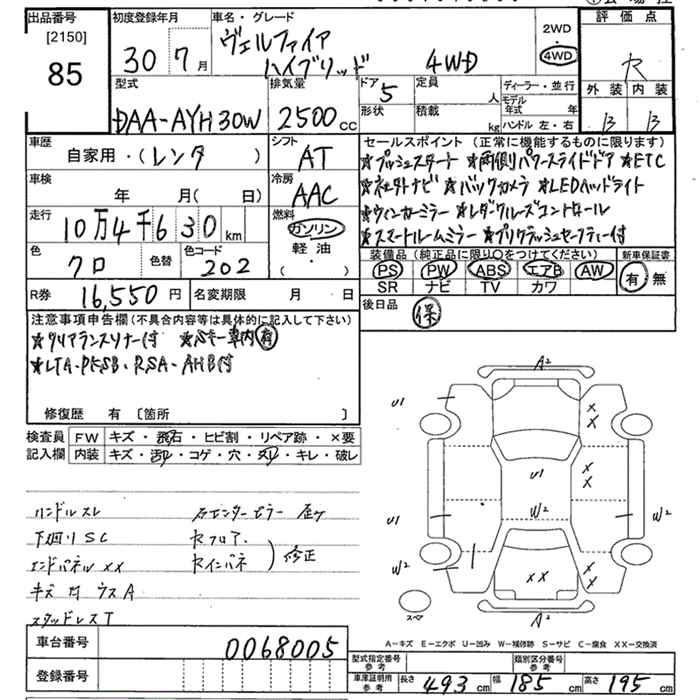 出品番号
[2150]
85
初度登録年月
30 7月
車名・グレード
ヴェルファイア
ハイブリッド 4WD
2WD
・
4WD
評価点
R
外装 内装
B B
型式
DAA-AYH30W
排気量
2500cc
ドア 5
形状
定員 人
積載 kg
ディーラー・並行
モデル年式 年
ハンドル 左・右
車歴
自家用・(レンタ )
シフト
AT
セールスポイント (正常に機能するものに限ります)
★プッシュスタート ★両側パワースライドドア ★ETC
★社外ナビ ★バックカメラ ★LEDヘッドライト
★ウィンカーミラー ★レーダークルーズコントロール
★スマートルームミラー ★プリクラッシュセーフティー付
車検
年 月( 日)
冷房
AAC
走行
10万4千630km
燃料
ガソリン
軽油
・( )
色
クロ
色替
色コード
202
装備品(純正品に限り〇をつけてください)
PS PW ABS エアB AW
SR ナビ TV カワ
新車保証書
有 無
R券 16,550円
名変期限 月 日
後日品
保
注意事項申告欄(不具合内容等は具体的に記入して下さい)
★クリアランスソナー付 ★Sキー車内有
★LTA・PKSB・RSA・AHB付
修復歴 有 [箇所 ]
検査員記入欄
FW キズ・飛石・ヒビ割・リペア跡・×要
内装 キズ・汚レ・コゲ・穴・スレ・キレ・破レ
ハンドルスレ
下回りSC
エンドパネルXX
キズ 凹 ウスA
スタッドレスT
右センターピラー 歪ケ
セフロア.
セインパネ
修正
A2
U1
X
X
U1
X
X
U1
W2
W2
W2
XX
A2
スペア
A-キズ E-エクボ U-凹み W-補修跡 S-サビ C-腐食 XX-交換済
車台番号
0068005
登録番号
型式指定番号
参考
類別区分番号
参考
車庫証明用
参考
長さ 493cm 幅 185cm 高さ 195cm